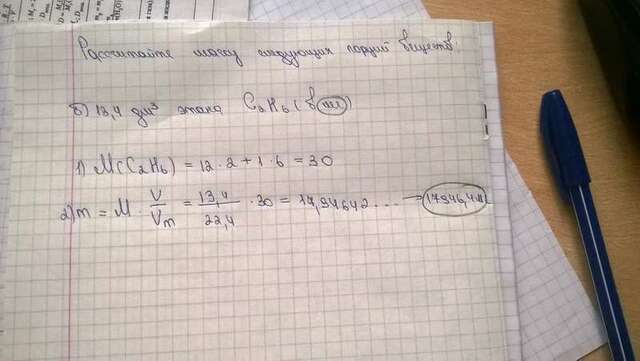 Рассчитайте массу следующих порций веществ.
б) 13,4 дм³ этана C₂H₆ (в мг)
1) M(C₂H₆) = 12 · 2 + 1 · 6 = 30
2) m = M · V/Vm = 13,4/22,4 · 30 = 17,94642 ... → 17946,4 мг